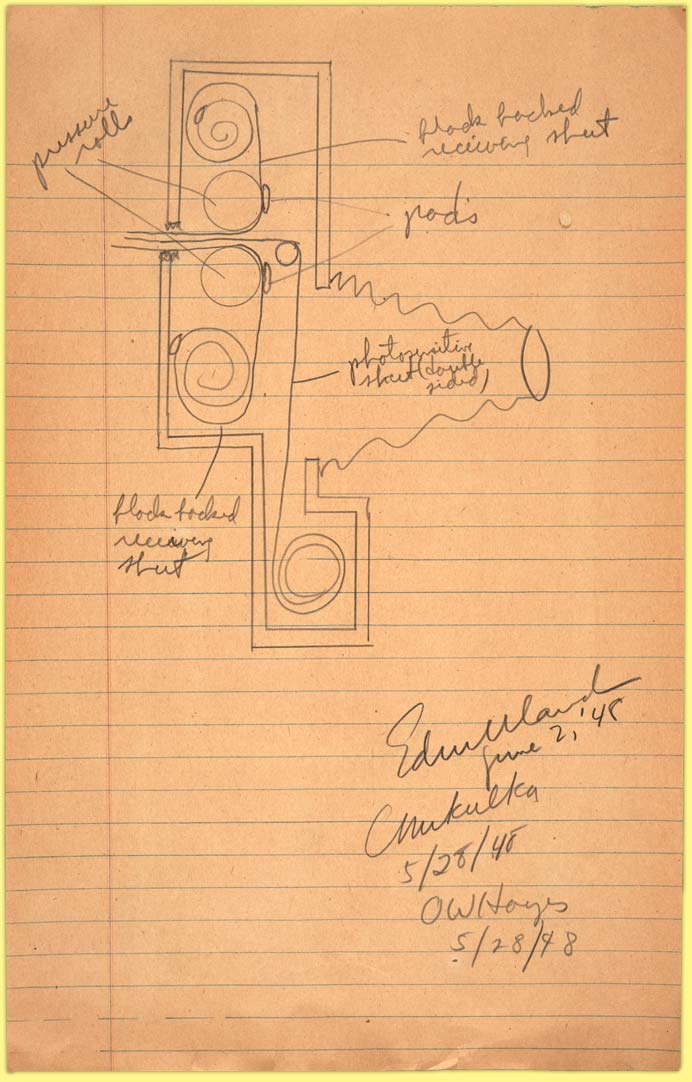 pressure
rolls
black backed
receiving sheet
pods
photosensitive
sheet (double
sided)
black backed
receiving
sheet
Edwin Land
June 2, '48
C Mikulka
5/28/48
OWHayes
5/28/48